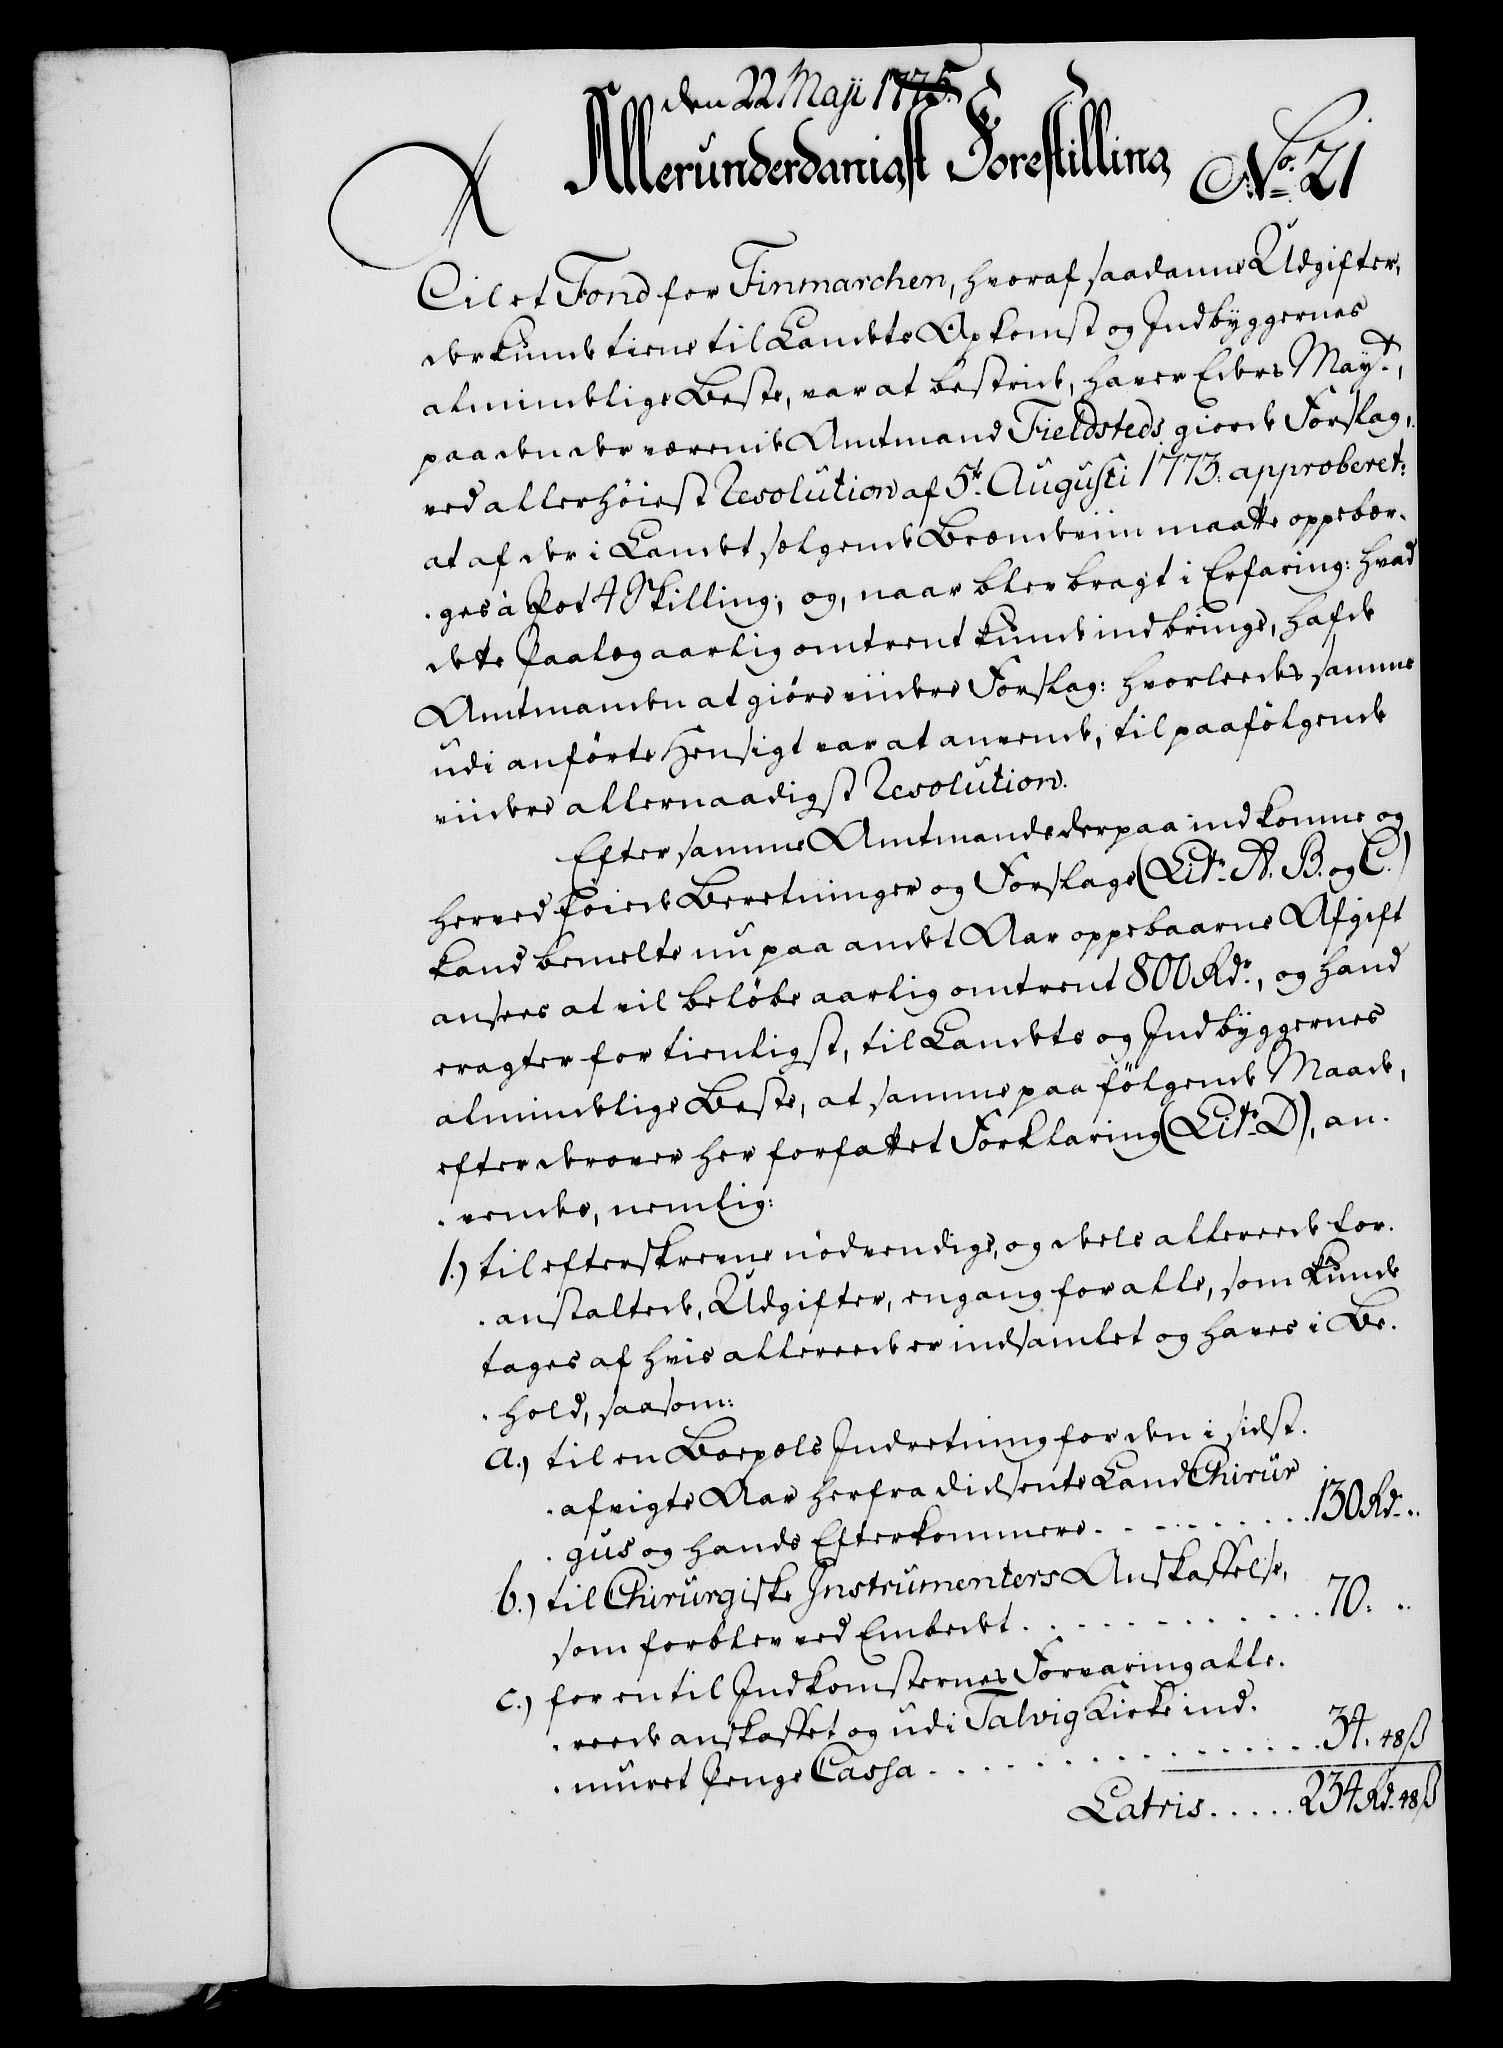 den 22 Maji 1775.
Allerunderdanigst Forestilling No. 21
Til et Fond for Finmarchen, hvoraf saadanne Udgifter,
der kunde tiene til Landets Opkomst og Indbyggernes
almindelige Beste, var at bestride, haver Eders Mayt.,
paa den da værende Amtmand Fieldsteds giorde Forslag,
ved allerhöiest Resolution af 5te Augusti 1773. approberet:
at af der i Landet sælgende Brændeviin maatte oppebær-
ges à Pot 4 Skilling; og, naar blev bragt i Erfaring: hvad
dette Paalæg aarlig omtrent kunde indbringe, hafde
Amtmanden at giöre viidere Forslag: hvorleedes samme
udi anförte Hensigt var at anvende, til paafölgende
viidere allernaadigst Resolution.
Efter samme Amtmands derpaa indkomne og
herved föiede Beretninger og Forslage (Litr. A. B. og C.)
kand bemelte nu paa andet Aar oppebaarne Afgift
ansees at vil belöbe aarlig omtrent 800 Rdr., og hand
eragter for tienligst, til Landets og Indbyggernes
almindelige Beste, at samme paa fölgende Maade,
efter derover her forfattet Forklaring (Litr. D), an-
vendes, nemlig:
1.) til efterskrevne nödvendige, og deels allereede for-
anstaltede, Udgifter, engang for alle, som kunde
tages af hvis allereede er indsamlet og haves i Be-
hold, saasom:
a.) til en Boepæls Indretning for den i sidst-
afvigte Aar herfra didsente Land Chirur
gus og hands Efterkommere . . . . . . . . 130 Rd. "
b.) til Chirurgiske Instrumenters Anskaffelse,
som forblev ved Embedet . . . . . . . . . . 70. "
c.) for en til Indkomsternes Forvaring alle-
reede anskaffet og udi Talvig Kirke ind-
muret Penge Cassa . . . . . . . . . . . . 34. 48 ß
Latris . . . . . 234 Rd. 48 ß